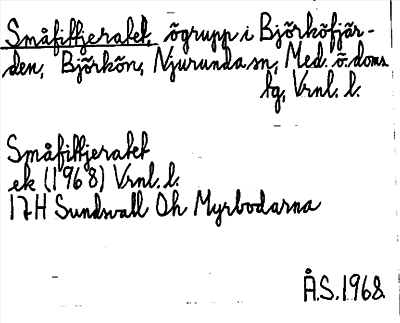 Småfittjeratet, ögrupp i Björköfjär-
den, Björkön, Njurunda sn, Med. ö. doms.
tg, Vrnl. l.
Småfittjeratet
ek (1968) Vrnl. l.
17H Sundsvall Öh Myrbodarna
Å.S. 1968.